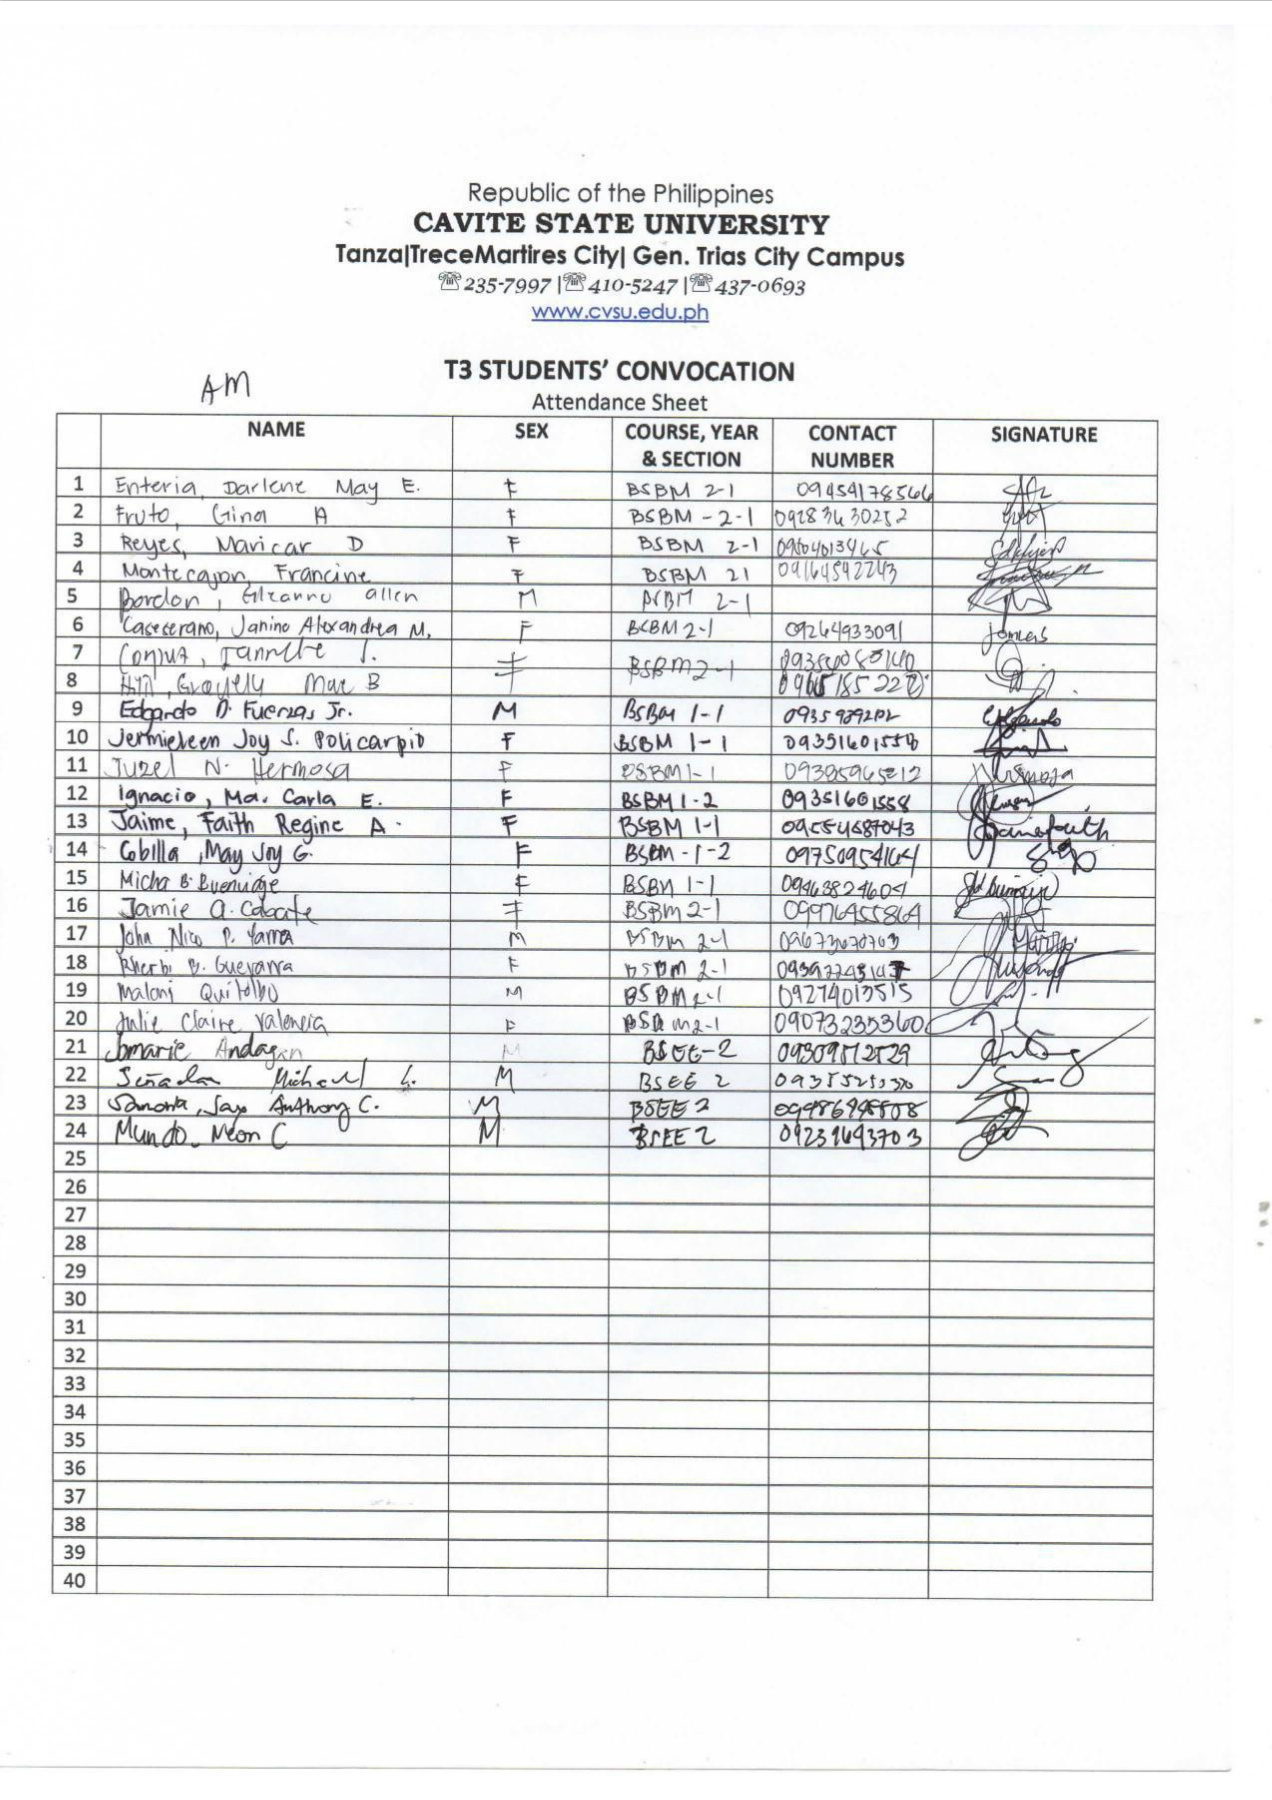 Republic of the Philippines
CAVITE STATE UNIVERSITY
Tanza|TreceMartires City| Gen. Trias City Campus
☏235-7997 |☏410-5247 |☏437-0693
www.cvsu.edu.ph
T3 STUDENTS' CONVOCATION
AM
Attendance Sheet
NAME SEX COURSE, YEAR & SECTION CONTACT NUMBER SIGNATURE
1 Enteria, Darlene May E. F BSBM 2-1 09454178566
2 Fruto, Gina A F BSBM - 2-1 09283630252
3 Reyes, Maricar D F BSBM 2-1 09504013465
4 Montecajon, Francine F BSBM 21 09164592243
5 Bordon, allen M BSBM 2-1
6 Casecerano, Janino Alexandrea M. F BSBM 2-1 09264933091
7 F BSBM2-1
8 Mae B
9 Edgardo D. Fuerzas Jr. M BSBM 1-1
10 Jermieleen Joy S. Policarpio F BSBM 1-1 09351601558
11 Juzel N. Hermosa F BSBM1-1 09385965212
12 Ignacio, Ma. Carla E. F BSBM 1-2 09351601558
13 Jaime, Faith Regine A. F BSBM 1-1 09554587043
14 Cobilla, May Joy G. F BSBM -1-2 09750954164
15 Micha B. F BSBM 1-1 09463824604
16 Jamie A. Cabate F BSBM 2-1 09976455864
17 John Nico P. Yarra M BSBM 2-1 09673670763
18 Rherbi B. Guevarra F BSBM 2-1
19 M BSBM 2-1 09274013515
20 Julie Claire Valencia F BSBM 2-1 09073235360
21 Jomarie Andagan M BSEE-2 09309812529
22 Michael M BSEE 2
23 Anthony C. M BSEE 2
24 Mundo, Neon C M BSEE 2 09239693703
25
26
27
28
29
30
31
32
33
34
35
36
37
38
39
40